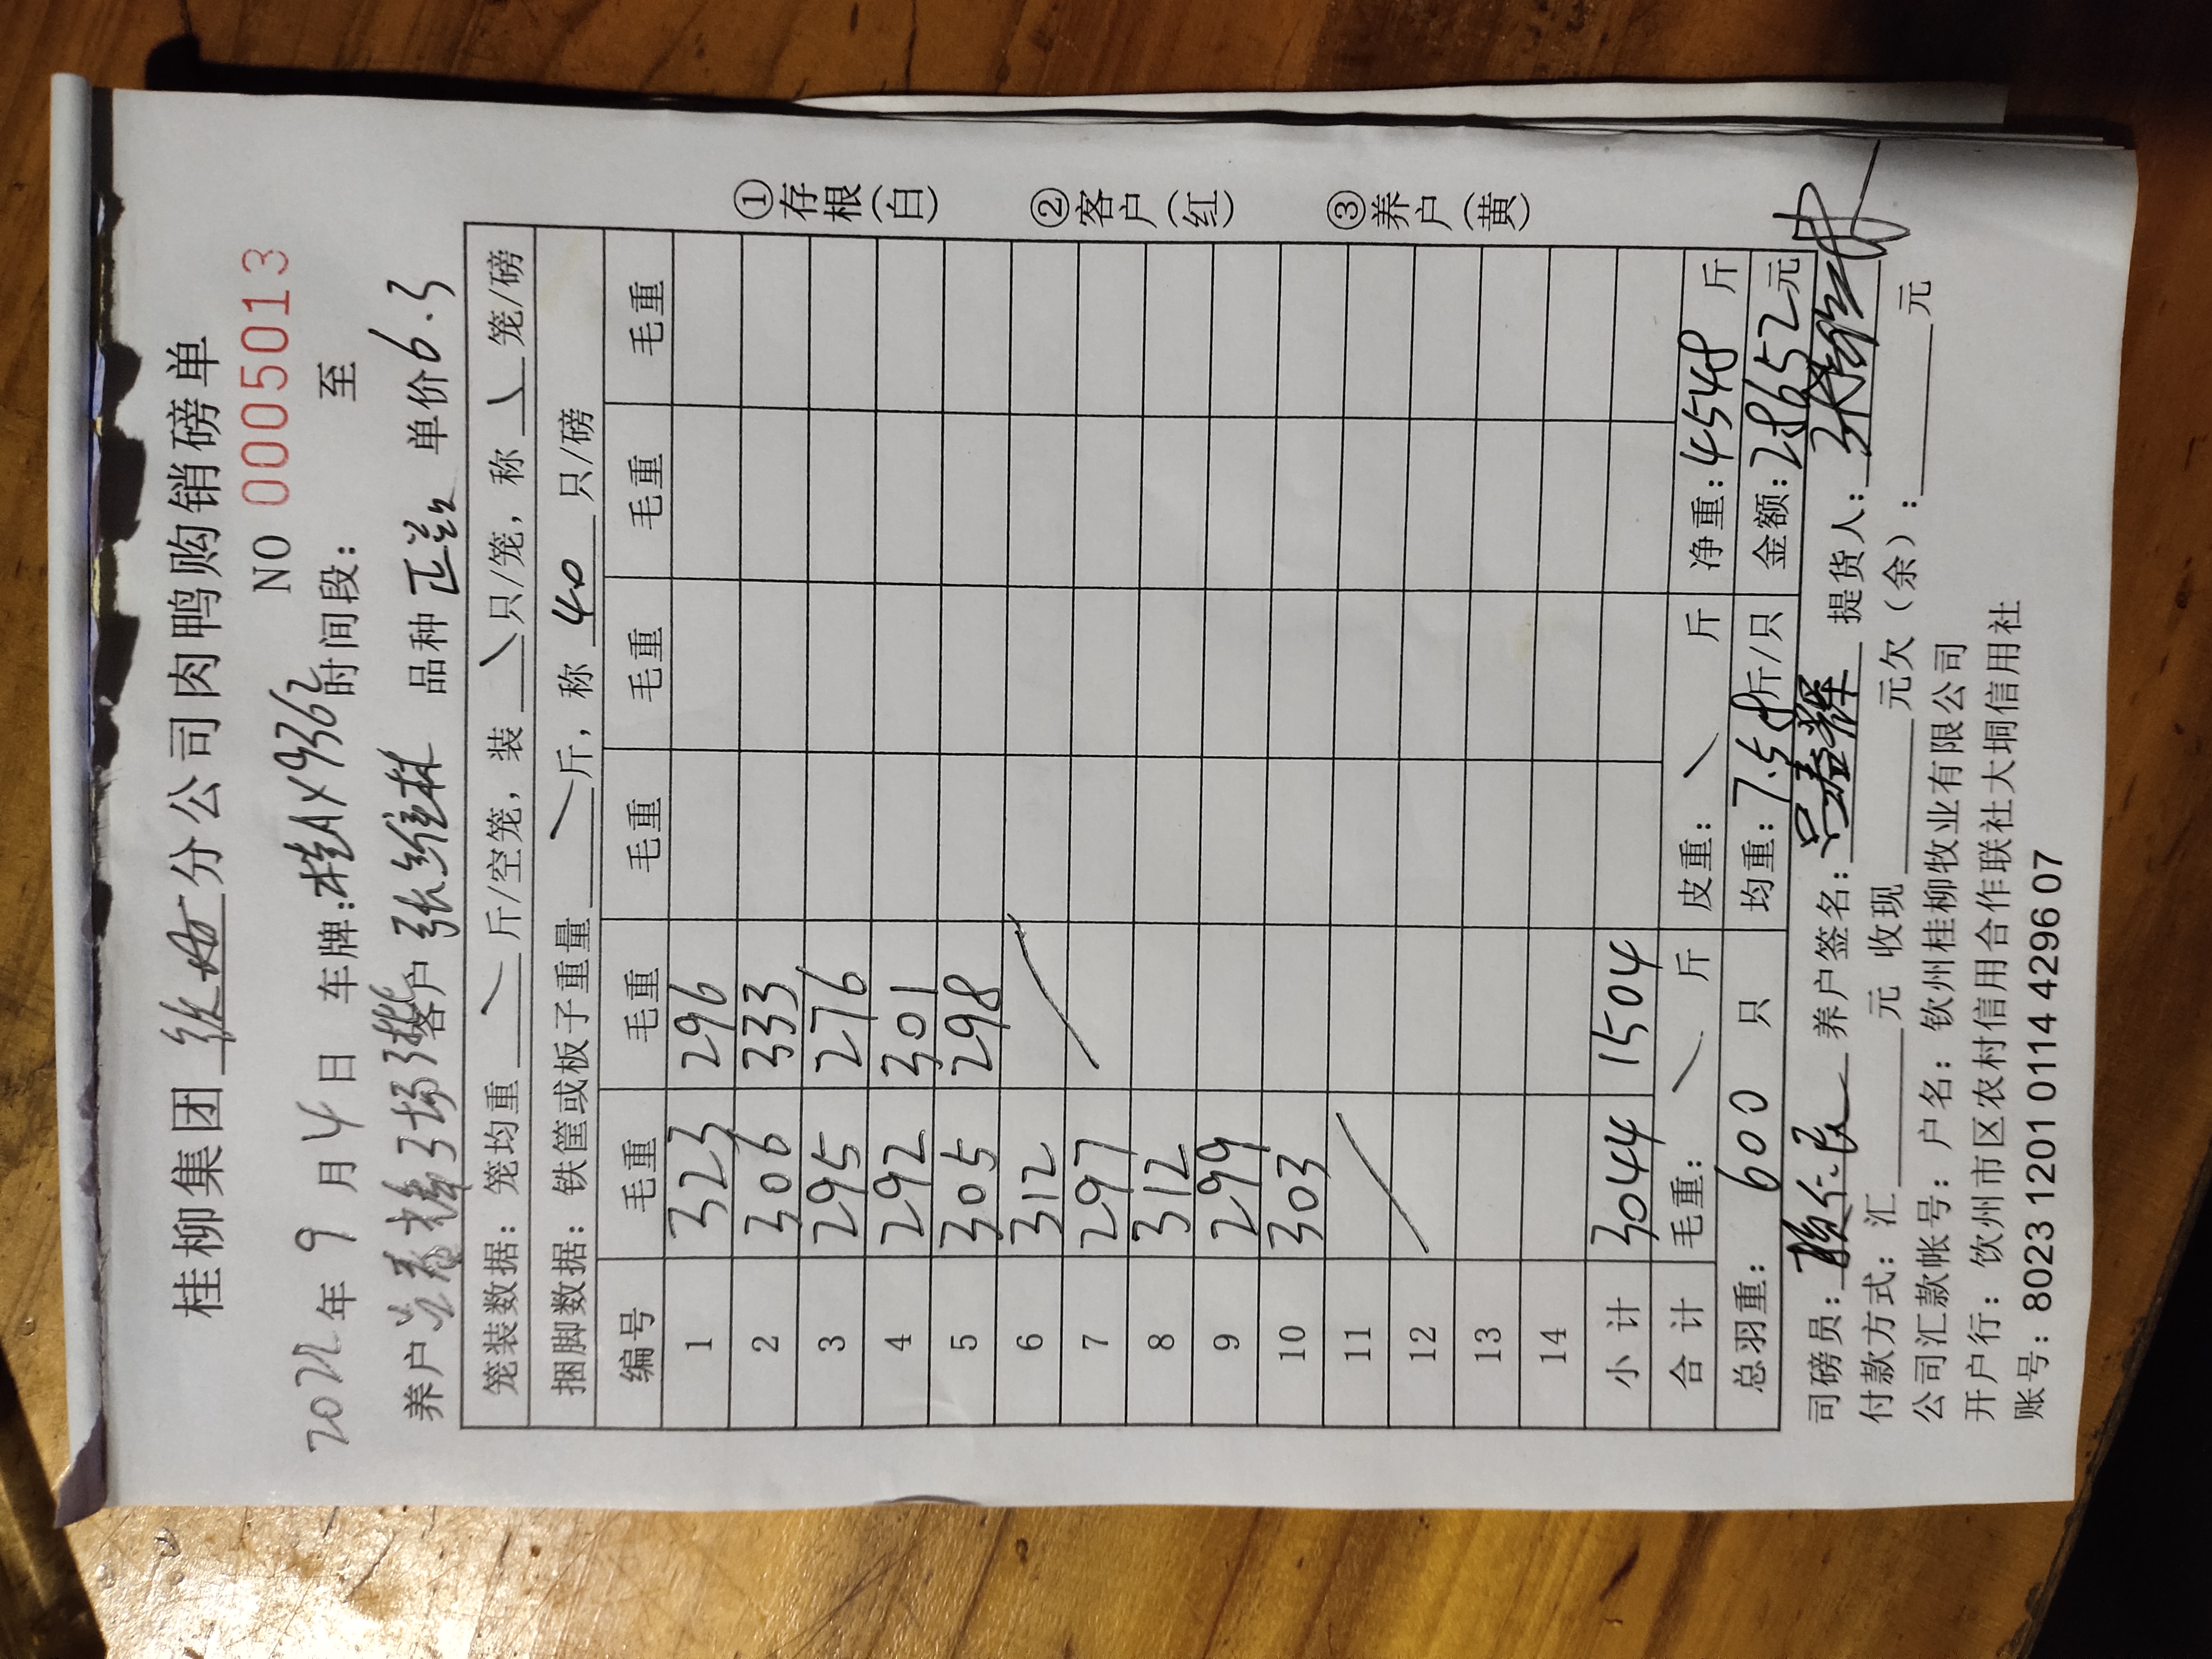 桂柳集团 分公司肉鸭购销磅单
NO 0005013
2022年 9 月 4 日 车牌:桂AX9362 时间段: 至
养户 客户 张维林 品种 正 单价 6.3
笼装数据:笼均重 斤/空笼,装 只/笼,称 笼/磅
捆脚数据:铁筐或板子重量 斤,称 40 只/磅
编号 毛重 毛重 毛重 毛重 毛重 毛重
1 323 296
2 306 333
3 295 276
4 292 301
5 305 298
6 312
7 297
8 312
9 299
10 303
11
12
13
14
小计 3044 1504
合计 毛重: 斤 皮重: 斤 净重:4548 斤
总羽重: 600 只 均重:7.58斤/只 金额:28652元
司磅员: 养户签名: 提货人:
付款方式:汇 元 收现 元欠(余): 元
公司汇款帐号:户名:钦州桂柳牧业有限公司
开户行:饮州市区农村信用合作联社大垌信用社
账号:8023 1201 0114 4296 07
①存根(白)
②客户(红)
③养户(黄)